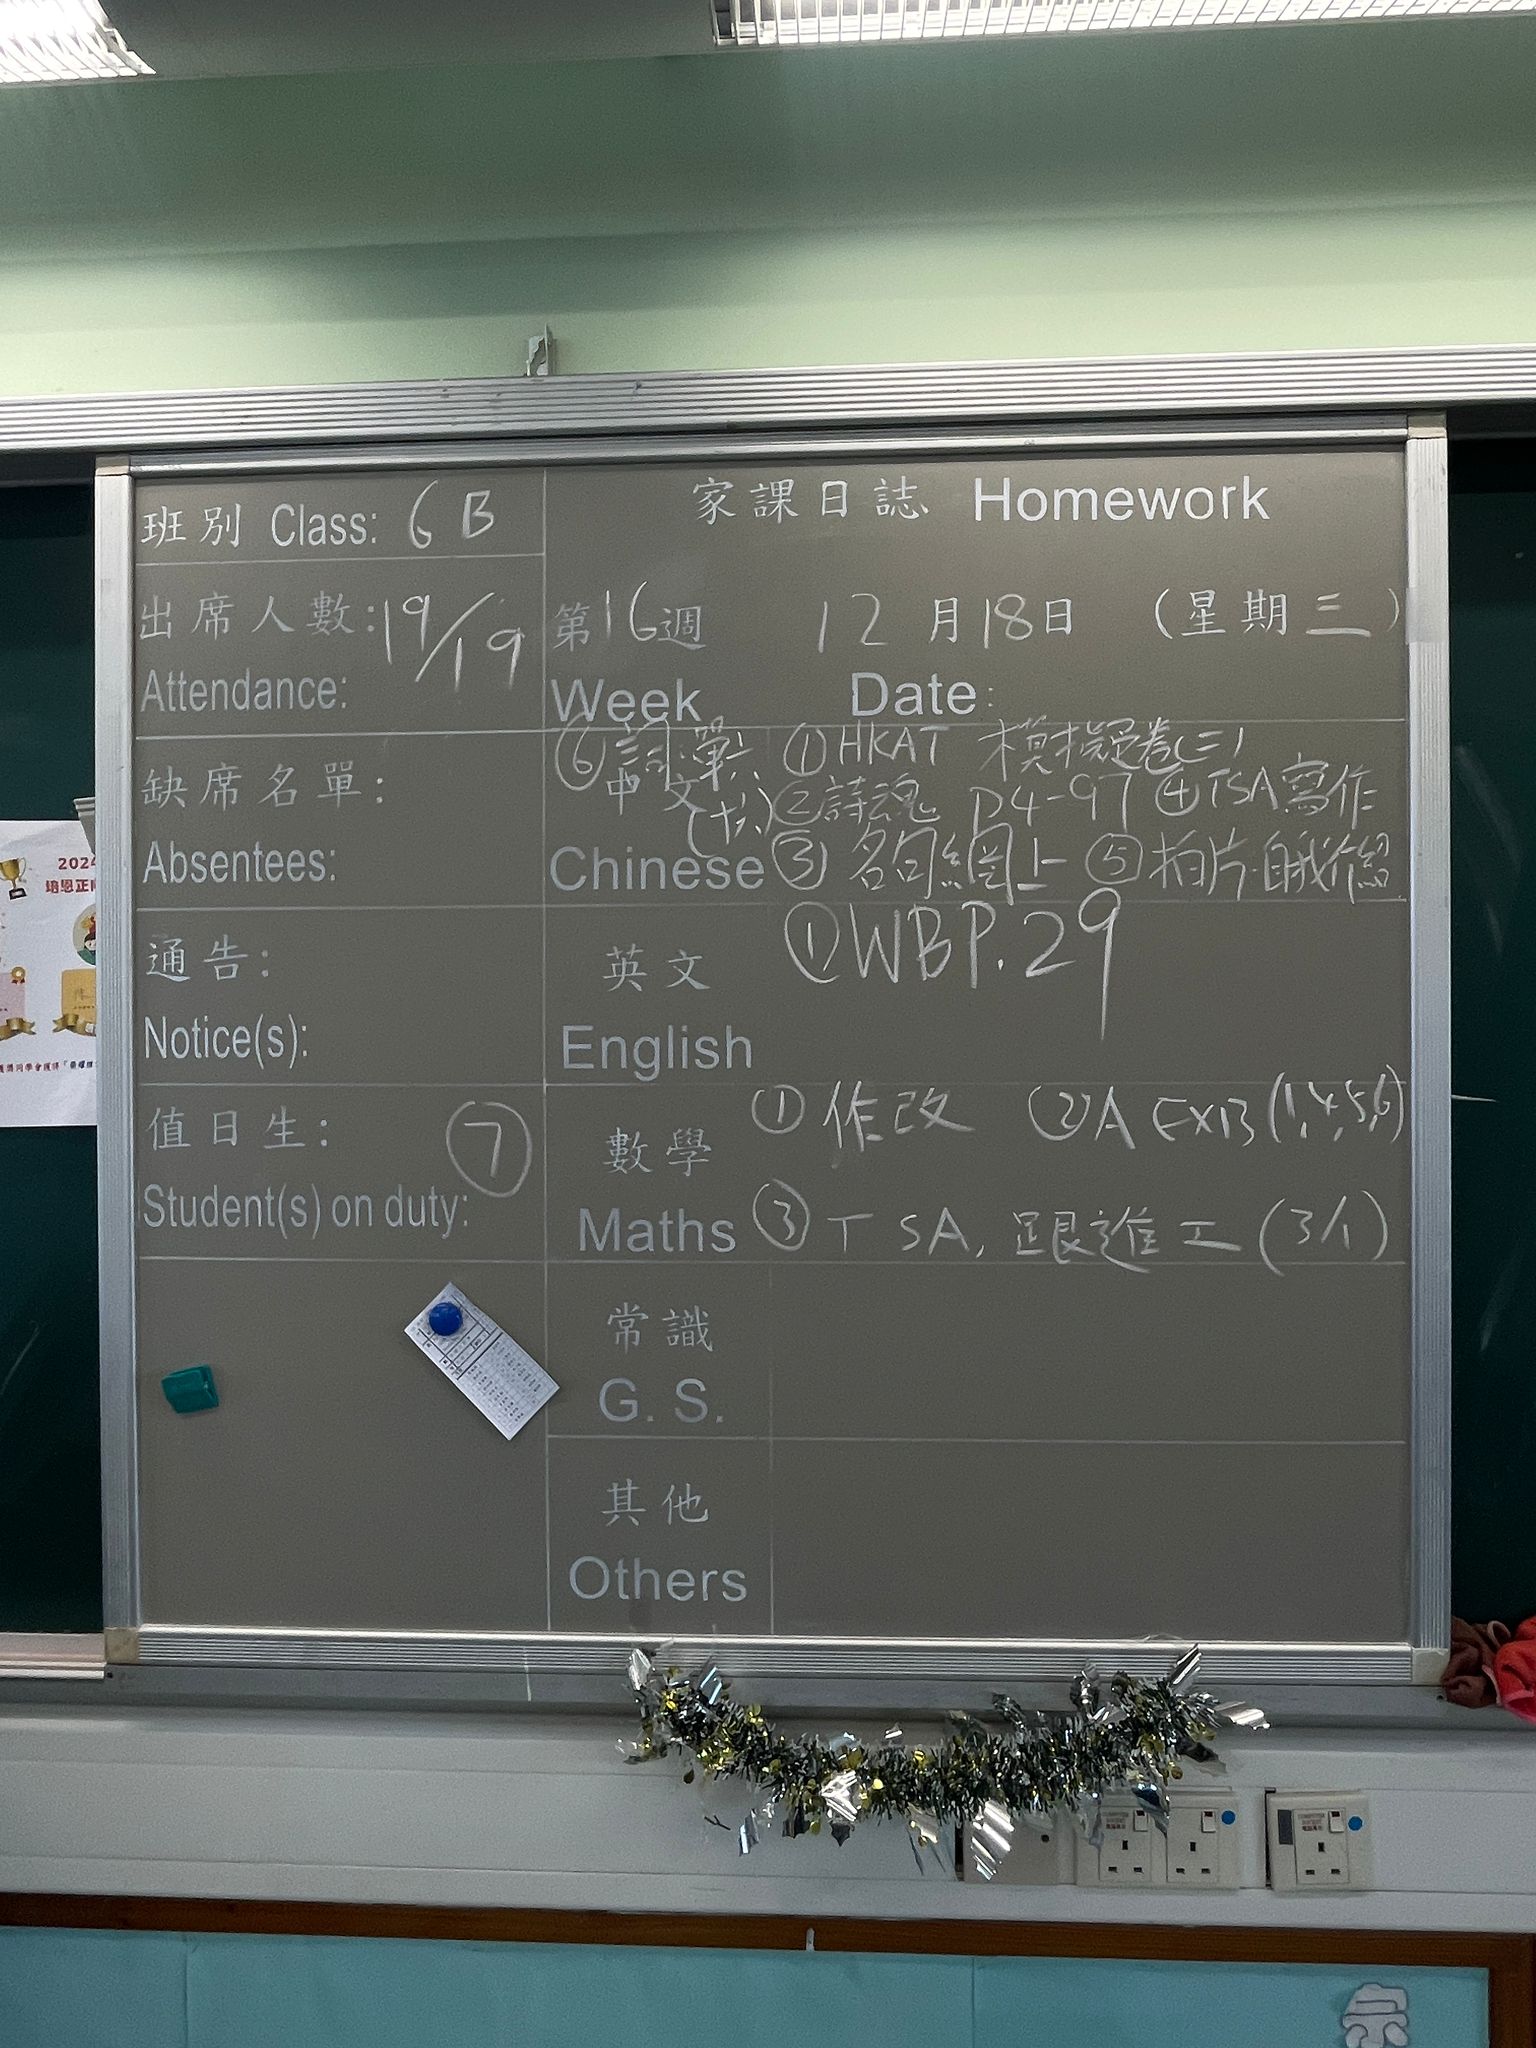 班別 Class: 6B
出席人數: 19/19
Attendance:
缺席名單:
Absentees:
通告:
Notice(s):
值日生: ⑦
Student(s) on duty:
家課日誌 Homework
第16週 12月18日 (星期三)
Week Date:
中文
Chinese
⑥詞單
(十六)
①HKAT 模擬卷(三)
②詩魂 P4-97 ④TSA寫作
③名句網上 ⑤拍片自我介紹
英文
English
①WBP.29
數學
Maths
①作改 ②A EXB(1,4,5,6)
③TSA,跟進工(3个)
常識
G. S.
其他
Others
2024